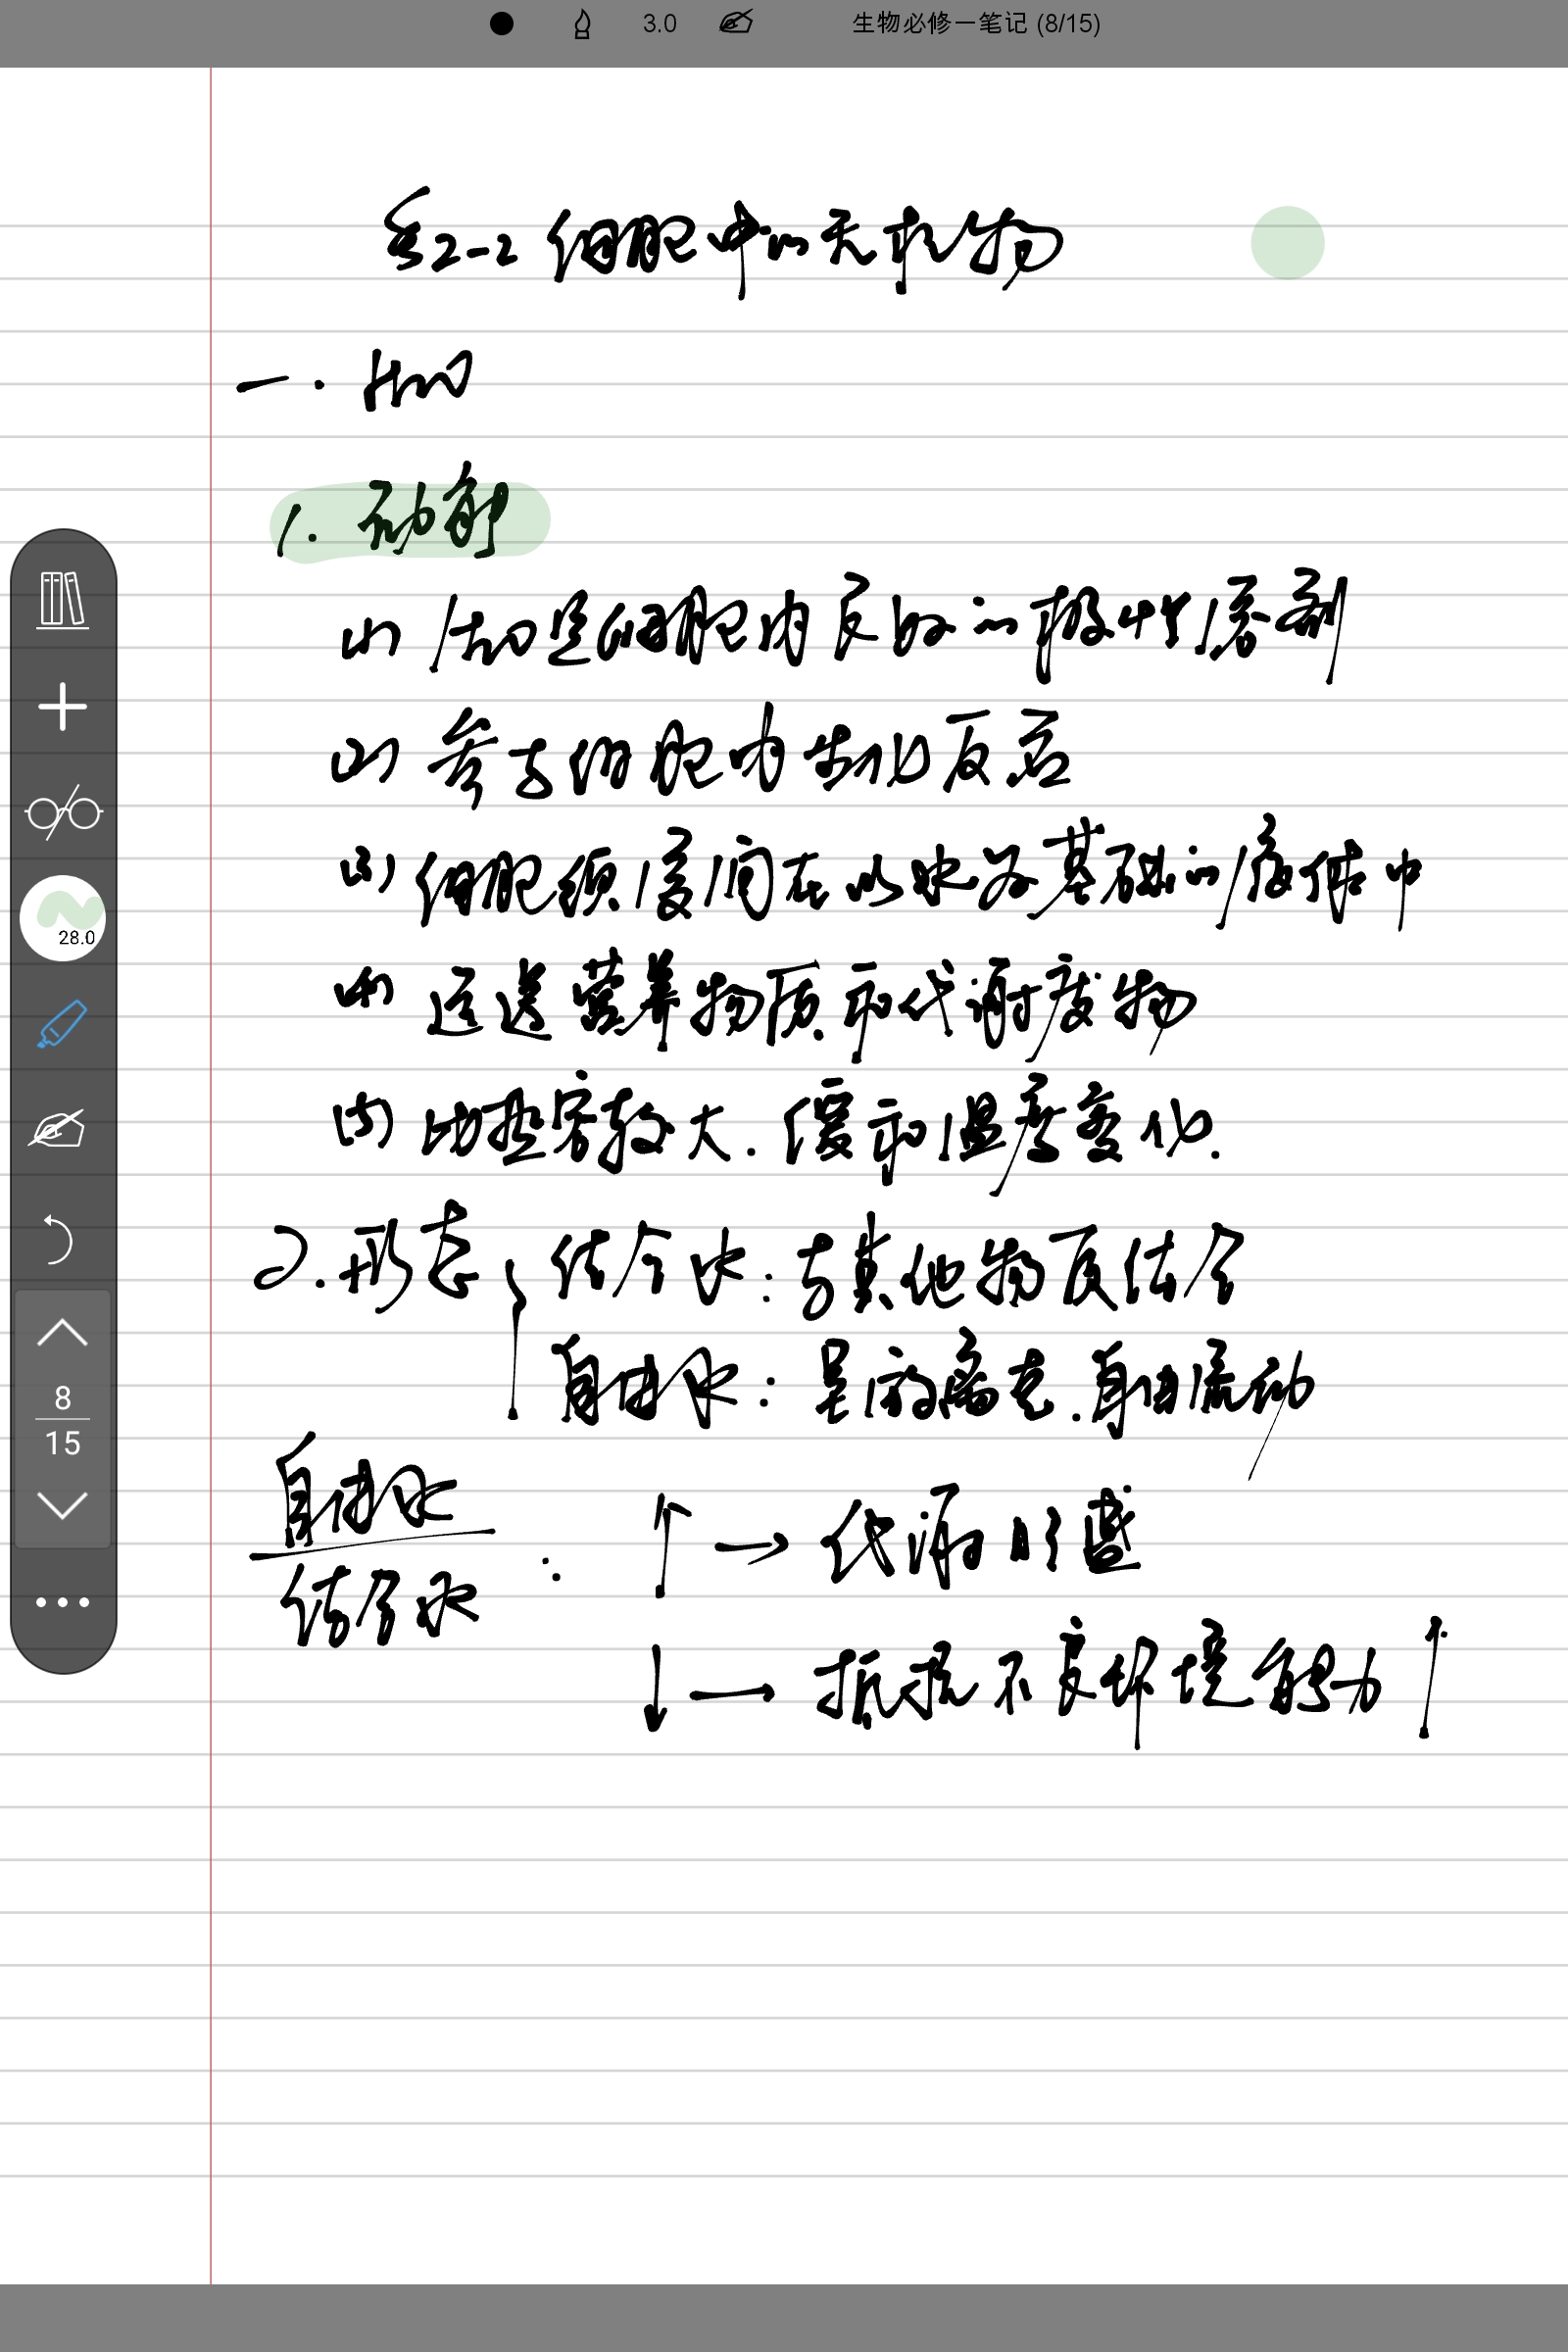 3.0 生物必修一笔记 (8/15)
2-2 细胞中的无机物
一. H2O
1. 功能
(1) 是细胞内反应的极性溶剂
(2) 参与细胞内生化反应
(3) 细胞须浸润在以水为基础的液体中
(4) 运送营养物质和代谢废物
(5) 比热容较大. 缓和温度变化.
2. 形态 { 结合水: 与其他物质结合
自由水: 呈游离态. 自由流动
自由水
结合水 : ↑ → 代谢旺盛
↓ → 抵抗不良环境能力↑
28.0
8
15